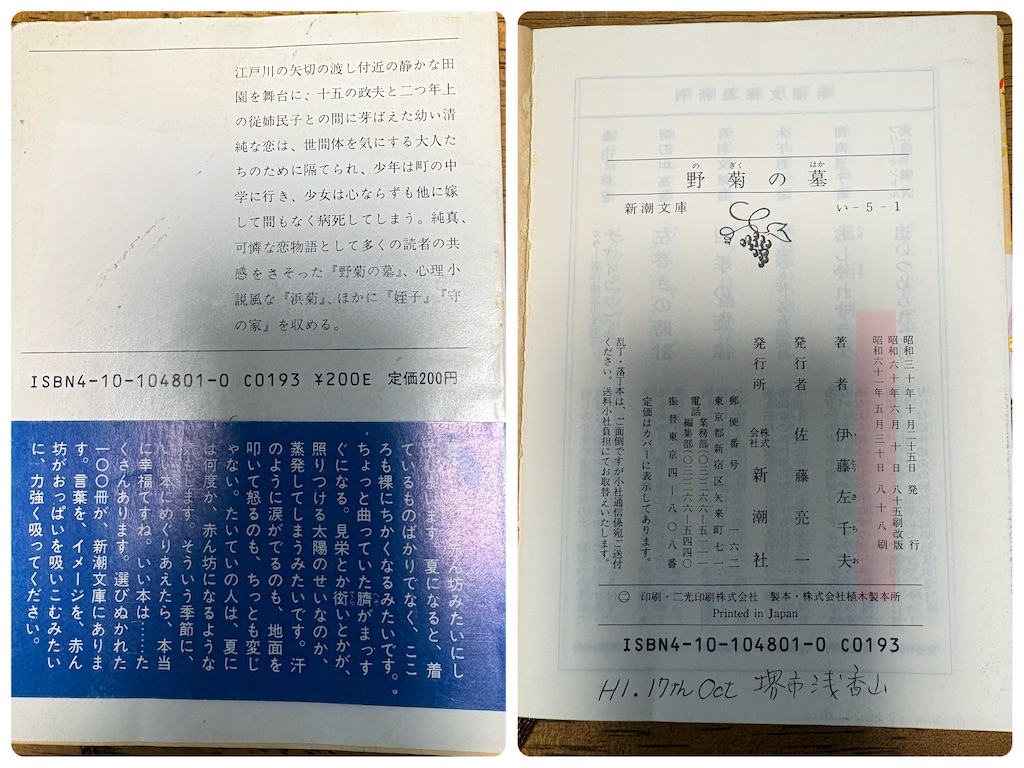 江戸川の矢切の渡し付近の静かな田
園を舞台に、十五の政夫と二つ年上
の従姉民子との間に芽ばえた幼い清
純な恋は、世間体を気にする大人た
ちのために隔てられ、少年は町の中
学に行き、少女は心ならずも他に嫁
して間もなく病死してしまう。純真、
可憐な恋物語として多くの読者の共
感をさそった『野菊の墓』、心理小
説風な『浜菊』、ほかに『姪子』『守
の家』を収める。
ISBN4-10-104801-0 C0193 ¥200E 定価200円
ん坊みたいにし
ます。夏になると、着
ているものばかりでなく、ここ
ろも裸にちかくなるみたいです。
ちょっと曲っていた臍がまっす
ぐになる。見栄とか衒いとかが、
照りつける太陽のせいなのか、
蒸発してしまうみたいです。汗
のように涙がでるのも、地面を
叩いて怒るのも、ちっとも変じ
ゃない。たいていの人は、夏に
は何度か、赤ん坊になるような
します。そういう季節に、
いい本にめぐりあえたら、本当
に幸福ですね。いい本は……た
くさんあります。選びぬかれた
一〇〇冊が、新潮文庫にありま
す。言葉を、イメージを、赤ん
坊がおっぱいを吸いこむみたい
に、力強く吸ってください。
野菊の墓
の ぎく はか
新潮文庫 い-5-1
昭和三十年十月二十五日 発行
昭和六十年六月十日 八十五刷改版
昭和六十一年五月三十日 八十八刷
著者 伊藤左千夫
い とう さ ち お
発行者 佐藤亮一
発行所 株式会社 新潮社
郵便番号 一六二
東京都新宿区矢来町七一
電話 業務部(〇三)二六六—五一一一
編集部(〇三)二六六—五四四〇
振替東京四—八〇八番
定価はカバーに表示してあります。
乱丁・落丁本は、ご面倒ですが小社通信係宛ご送付
ください。送料小社負担にてお取替えいたします。
印刷・二光印刷株式会社 製本・株式会社植木製本所
Printed in Japan
ISBN4-10-104801-0 C0193
H1. 17th Oct 堺市浅香山